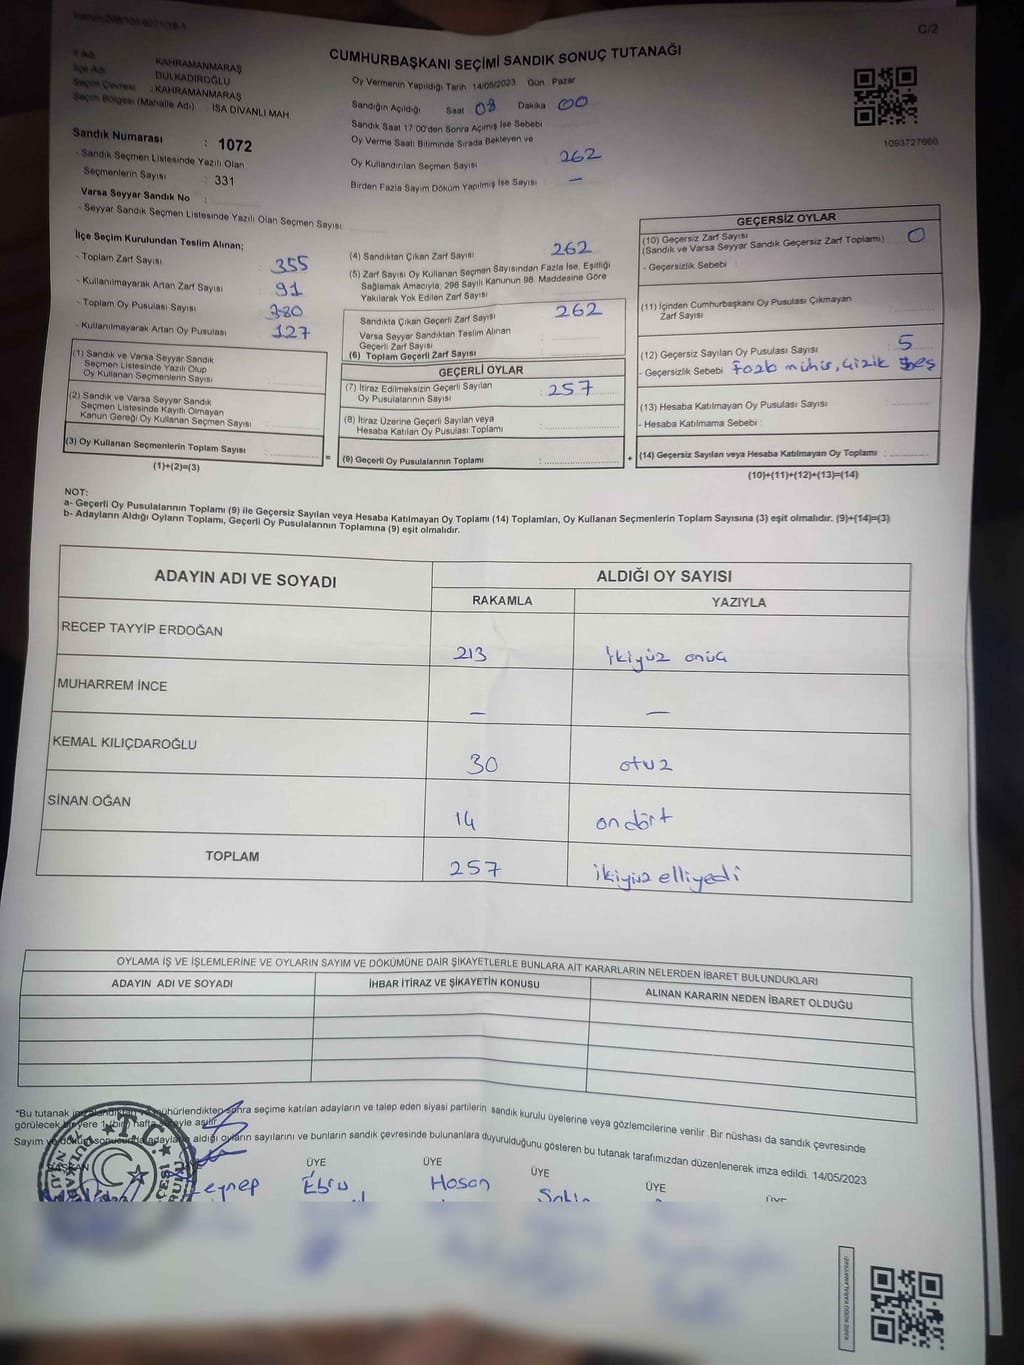 C/2
CUMHURBAŞKANI SEÇİMİ SANDIK SONUÇ TUTANAĞI
KAHRAMANMARAŞ
İlçe Adı DULKADİROĞLU
Seçim Çevresi : KAHRAMANMARAŞ
Seçim Bölgesi (Mahalle Adı) : İSA DİVANLI MAH.
Sandık Numarası : 1072
- Sandık Seçmen Listesinde Yazılı Olan
Seçmenlerin Sayısı : 331
Varsa Seyyar Sandık No :
- Seyyar Sandık Seçmen Listesinde Yazılı Olan Seçmen Sayısı:
Oy Vermenin Yapıldığı Tarih 14/05/2023 Gün Pazar
Sandığın Açıldığı Saat 08 Dakika 00
Sandık Saat 17:00'den Sonra Açımış İse Sebebi
Oy Verme Saati Bitiminde Sırada Bekleyen ve
Oy Kullandırılan Seçmen Sayısı 262
Birden Fazla Sayım Döküm Yapılmış İse Sayısı : –
1093727666
İlçe Seçim Kurulundan Teslim Alınan;
- Toplam Zarf Sayısı : 355
- Kullanılmayarak Artan Zarf Sayısı : 91
- Toplam Oy Pusulası Sayısı : 380
- Kullanılmayarak Artan Oy Pusulası : 127
(1) Sandık ve Varsa Seyyar Sandık
Seçmen Listesinde Yazılı Olup
Oy Kullanan Seçmenlerin Sayısı :
(2) Sandık ve Varsa Seyyar Sandık
Seçmen Listesinde Kayıtlı Olmayan
Kanun Gereği Oy Kullanan Seçmen Sayısı :
(3) Oy Kullanan Seçmenlerin Toplam Sayısı :
(1)+(2)=(3)
(4) Sandıktan Çıkan Zarf Sayısı : 262
(5) Zarf Sayısı Oy Kullanan Seçmen Sayısından Fazla İse, Eşitliği
Sağlamak Amacıyla; 298 Sayılı Kanunun 98. Maddesine Göre
Yakılarak Yok Edilen Zarf Sayısı :
Sandıkta Çıkan Geçerli Zarf Sayısı : 262
Varsa Seyyar Sandıktan Teslim Alınan
Geçerli Zarf Sayısı :
(6) Toplam Geçerli Zarf Sayısı :
GEÇERLİ OYLAR
(7) İtiraz Edilmeksizin Geçerli Sayılan
Oy Pusulalarının Sayısı : 257
(8) İtiraz Üzerine Geçerli Sayılan veya
Hesaba Katılan Oy Pusulası Toplamı :
= (9) Geçerli Oy Pusulalarının Toplamı : +
GEÇERSİZ OYLAR
(10) Geçersiz Zarf Sayısı
(Sandık ve Varsa Seyyar Sandık Geçersiz Zarf Toplamı) : 0
- Geçersizlik Sebebi :
(11) İçinden Cumhurbaşkanı Oy Pusulası Çıkmayan
Zarf Sayısı :
(12) Geçersiz Sayılan Oy Pusulası Sayısı : 5
- Geçersizlik Sebebi : Fazla mühür, Çizik
(13) Hesaba Katılmayan Oy Pusulası Sayısı :
- Hesaba Katılmama Sebebi :
(14) Geçersiz Sayılan veya Hesaba Katılmayan Oy Toplamı :
(10)+(11)+(12)+(13)=(14)
NOT:
a- Geçerli Oy Pusulalarının Toplamı (9) ile Geçersiz Sayılan veya Hesaba Katılmayan Oy Toplamı (14) Toplamları, Oy Kullanan Seçmenlerin Toplam Sayısına (3) eşit olmalıdır. (9)+(14)=(3)
b- Adayların Aldığı Oyların Toplamı, Geçerli Oy Pusulalarının Toplamına (9) eşit olmalıdır.
ADAYIN ADI VE SOYADI ALDIĞI OY SAYISI
RAKAMLA YAZIYLA
RECEP TAYYİP ERDOĞAN 213 İkiyüz onüç
MUHARREM İNCE – –
KEMAL KILIÇDAROĞLU 30 otuz
SİNAN OĞAN 14 ondört
TOPLAM 257 ikiyüz elliyedi
OYLAMA İŞ VE İŞLEMLERİNE VE OYLARIN SAYIM VE DÖKÜMÜNE DAİR ŞİKAYETLERLE BUNLARA AİT KARARLARIN NELERDEN İBARET BULUNDUKLARI
ADAYIN ADI VE SOYADI İHBAR İTİRAZ VE ŞİKAYETİN KONUSU ALINAN KARARIN NEDEN İBARET OLDUĞU
*Bu tutanak imzalandıktan ve mühürlendikten sonra seçime katılan adayların ve talep eden siyasi partilerin sandık kurulu üyelerine veya gözlemcilerine verilir .Bir nüshası da sandık çevresinde
görülecek bir yere 1 (bir) hafta süreyle asılır.
Sayım ve döküm sonucunda adayların aldığı oyların sayılarını ve bunların sandık çevresinde bulunanlara duyurulduğunu gösteren bu tutanak tarafımızdan düzenlenerek imza edildi. 14/05/2023
BAŞKAN ÜYE ÜYE ÜYE ÜYE ÜYE
Zeynep Ebru Hasan
T.C.
KARE KODU KARALAMAYINIZ!